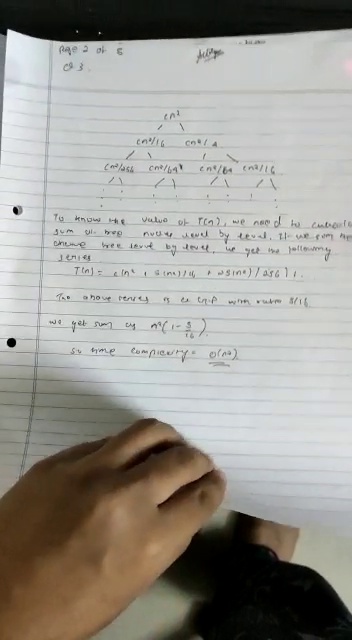 Page 2 of 8
Q3.
cn²
cn²/16 cn²/4
cn²/256 cn²/64 cn²/64 cn²/16
To know the value of T(n), we need to calculate
sum of tree nodes level by level. If we sum the
above tree level by level, we get the following
series
T(n) = c(n² + 5(n²)/16 + 25(n²)/256) +
The above series is a G.P with ratio 5/16
we get sum as n²(1 - 5/16).
so time complexity = O(n²)